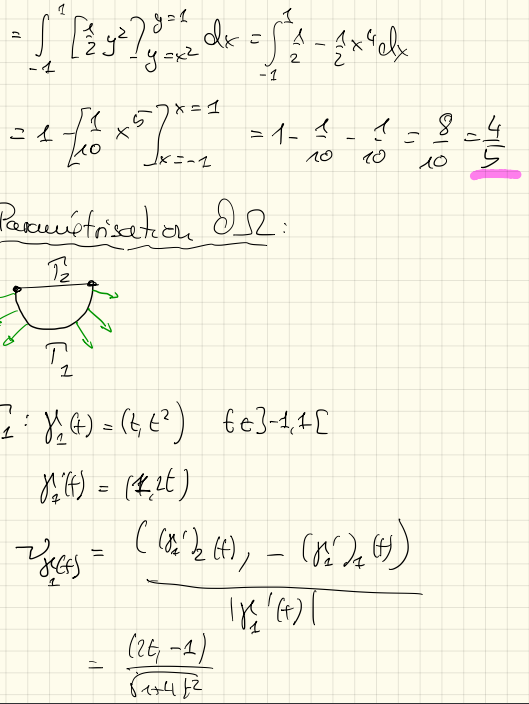 = ∫_{-1}^{1} [1/2 y²]_{y=x²}^{y=1} dx = ∫_{-1}^{1} 1/2 - 1/2 x⁴ dx
= 1 - [1/10 x⁵]_{x=-1}^{x=1} = 1 - 1/10 - 1/10 = 8/10 = 4/5
Paramétrisation ∂Ω :
Γ₂
Γ₁
Γ₁ : γ₁(t) = (t, t²) t ∈ ]-1,1[
γ₁'(t) = (1, 2t)
ν_{γ₁(t)} = ((γ₁')₂(t), -(γ₁')₁(t)) / |γ₁'(t)|
= (2t, -1) / √(1+4t²)